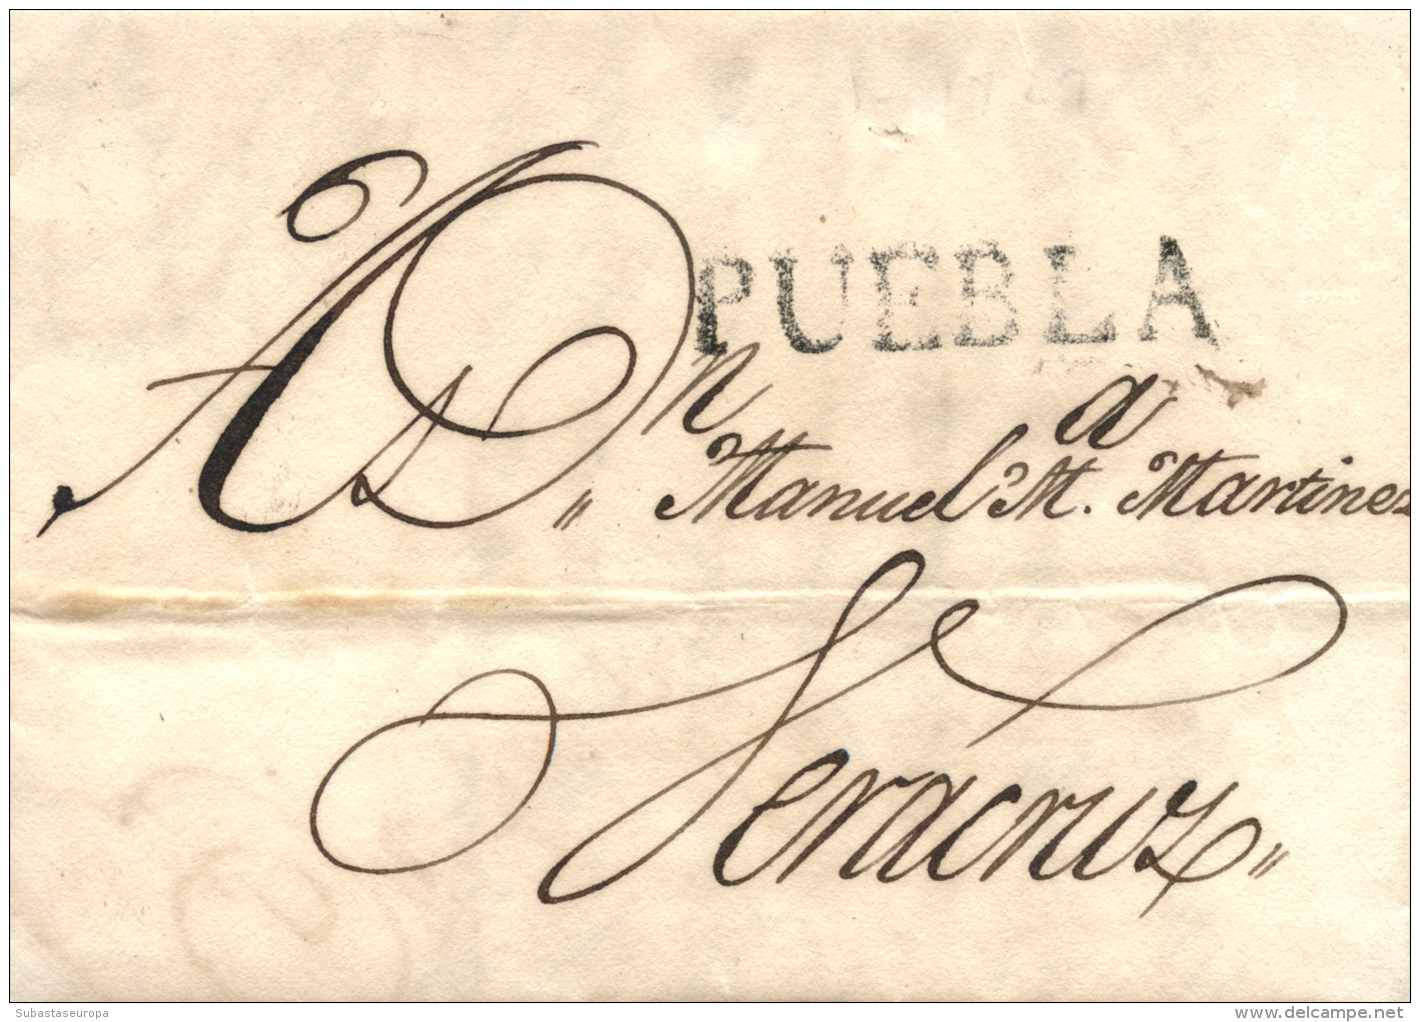 PUEBLA
A Dn. Manuel Ma. Martinez
Veracruz
Subastaseuropa
delcampe.net